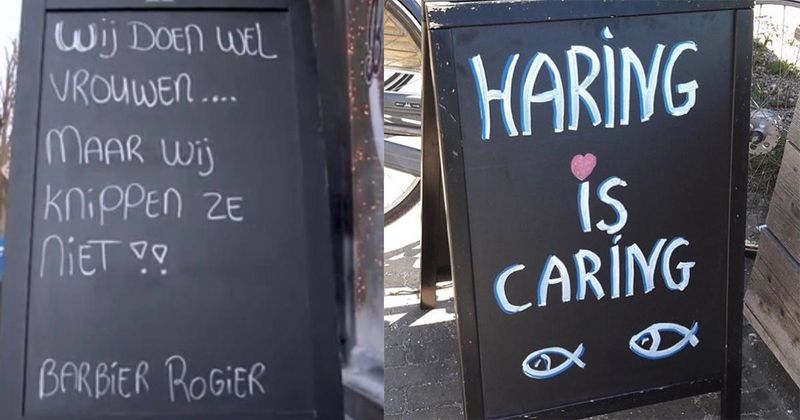 Wij DOEN WEL
VROUWEN....
MAAR Wij
KNiPPEN ZE
NiET !!
BARBiER ROGiER
HARiNG
iS
CARiNG